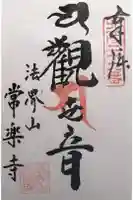 奉拝
観世音
法界山
常楽寺